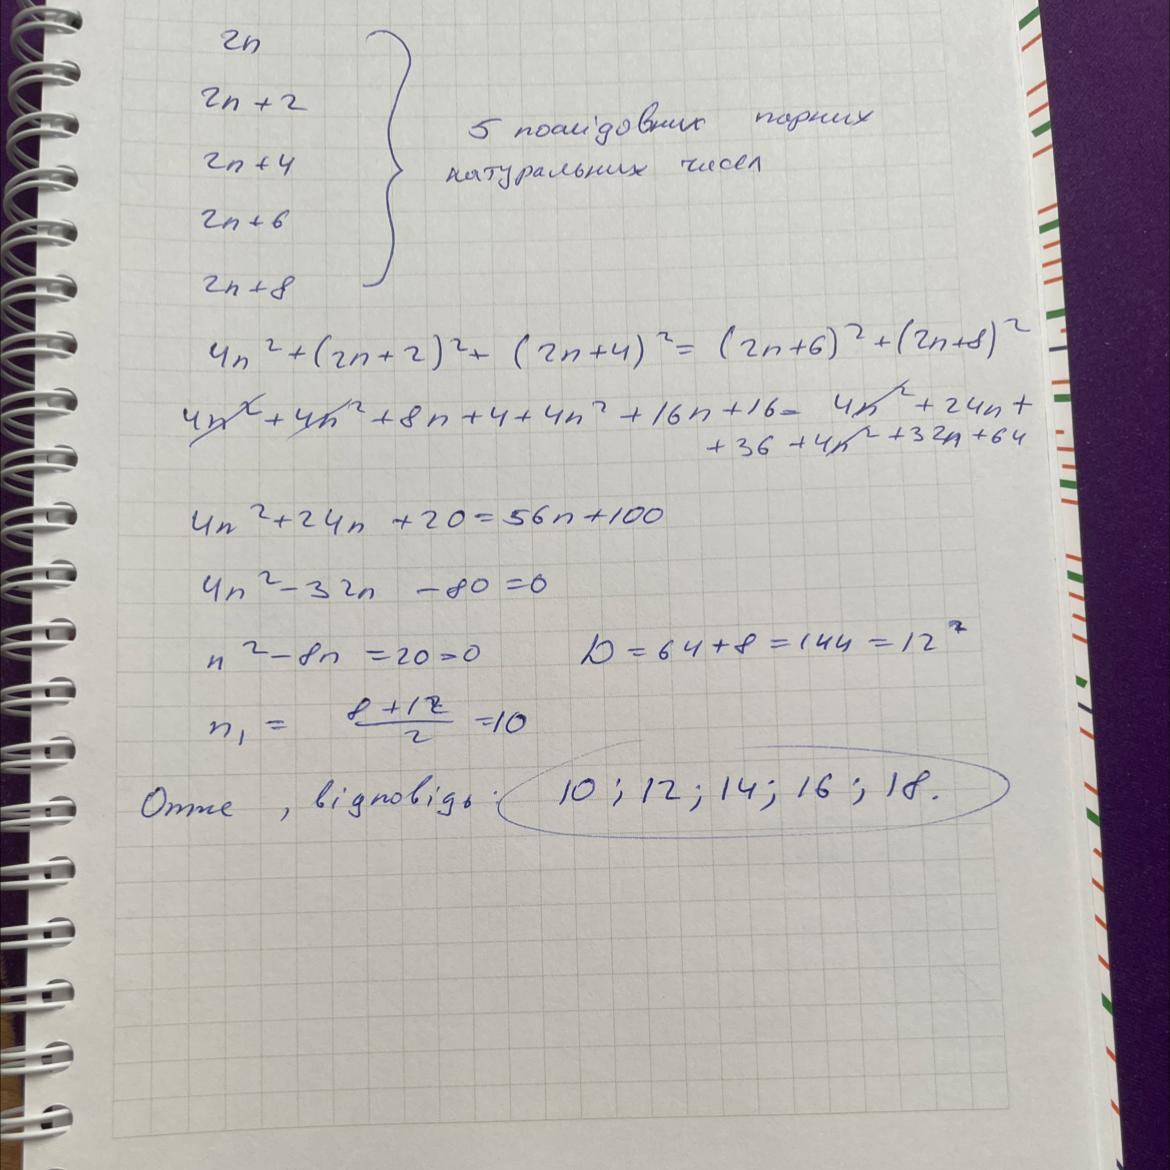 2n
2n + 2
2n + 4
2n + 6
2n + 8
5 послідовних парних
натуральних чисел
4n² + (2n + 2)² + (2n + 4)² = (2n + 6)² + (2n + 8)²
4n² + 4n² + 8n + 4 + 4n² + 16n + 16 = 4n² + 24n +
+ 36 + 4n² + 32n + 64
4n² + 24n + 20 = 56n + 100
4n² - 32n - 80 = 0
n² - 8n = 20 = 0 D = 64 + 8 = 144 = 12²
n₁ = (8 + 12)/2 = 10
Отже, відповідь: 10; 12; 14; 16; 18.